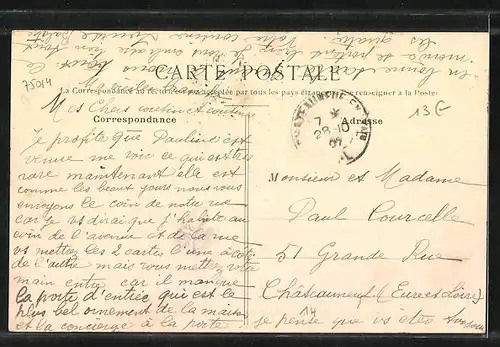 CARTE POSTALE
La Correspondance au recto n'est pas acceptée par tous les pays étrangers. (Se renseigner à la Poste)
Correspondance
Adresse
75014
13 €
7
28-10
Mes Chers cousin et cousine
Je profite que Pauline est
venue me voir ce qui est très
rare maintenant elle est
comme les beaux jours nous vous
envoyons le coin de notre rue
car je vs dirai que j'habite au
coin de l'avenue et de la rue
vs mettez les 2 cartes l'une à côté
de l'autre mais vous mettez votre
main entre car il manque
la porte d'entrée qui est le
plus bel ornement de la maison
et la concierge à la porte
Monsieur et Madame
Paul Courcelle
51 Grande Rue
Châteauneuf (Eure et Loire)
14
je pense que vs êtes
en bonne santé
les quatre Votre cousine